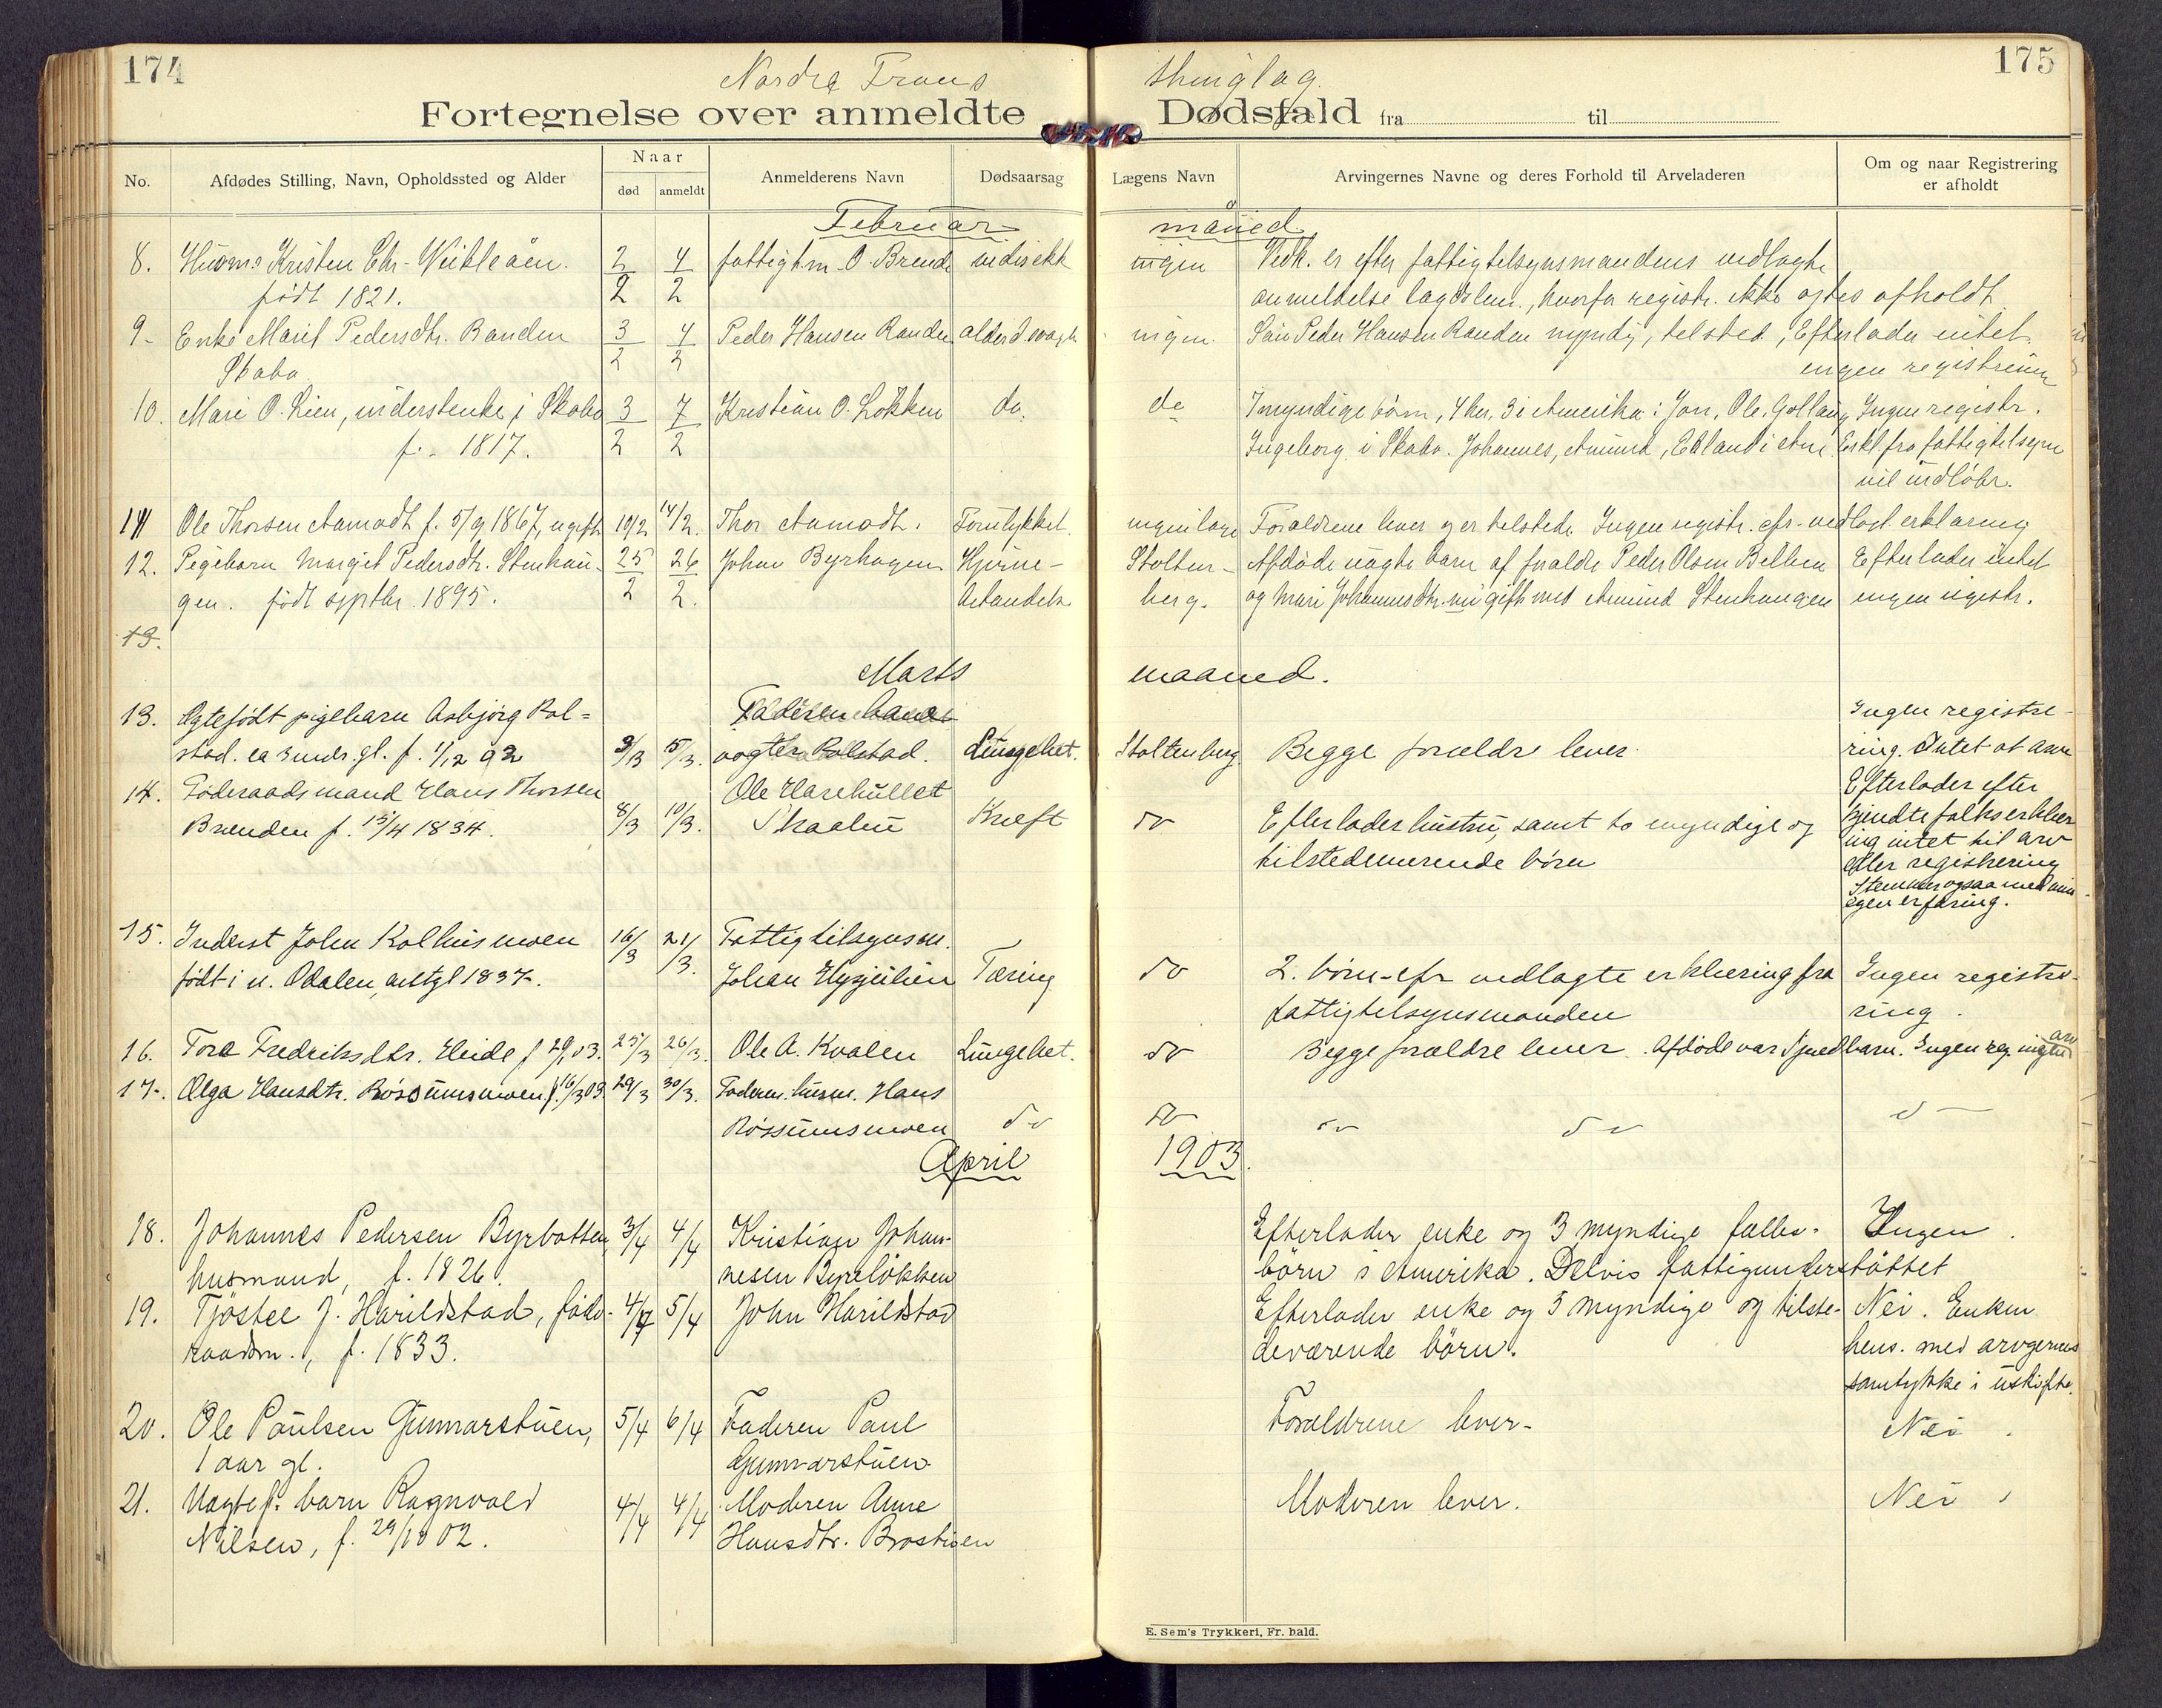 174
Nordre Frons
thinglag.
175
Fortegnelse over anmeldte Dødsfald fra til
No.
Afdødes Stilling, Navn, Opholdssted og Alder
Naar
død
anmeldt
Anmelderens Navn
Dødsaarsag
Lægens Navn
Arvingernes Navne og deres Forhold til Arveladeren
Om og naar Registrering
er afholdt
Februar måned
8. Husm. Kristen Chr. 2/2 4/2 fattigt.m. O. Brende ingen Vedk. er efter fattigtilsynsmandens vedlagte
født 1821. anmeldelse lægdslem, hvorfor registr. ikke agtes afholdt
9. Enke Marit Pedersdtr. Randen 3/2 4/2 Peder Hansen Randen alderd. ingen Søn Peder Hansen Randen myndig, tilsted, Efterlader intet
Skabo ingen registrering
10. Mari O. Lien, inderstenke i Skabo 3/2 7/2 Kristian O. Løkken do. do 7 myndige børn, 4 her, 3 i Amerika: Jon, Ole, Ingen registr.
f. 1817. Ingeborg i Skabo. Johannes, Amund, Erland i Am. Erkl. fra fattigtilsyn
vil indløbe.
11 Ole Thorsen Aamodt f. 5/9 1867, ugift 10/2 14/2. Thor Aamodt. Forulykket ingen læge Forældrene lever og er tilstede. Ingen registr. cfr. vedlagt erklæring
12. Pigebarn Margit Pedersdtr. Stenhau- 25/2 26/2. Johan Byrhagen Hjerne- Stolten- Afdøde uægte barn af foræld. Peder Olsen Efterlader intet
gen. født septbr. 1895. betændelse berg. og Mari Johannesdtr. nu gift med Amund Stenhaugen ingen registr.
13.
Marts maaned.
13. Ægtefødt pigebarn Asbjørg Rol= Faderen bane- Ingen registre-
stad. ca 3 mdr. gl. f. 1/12 02 3/3 5/3. vogter Rolstad. Lungebet. Stoltenberg Begge forældre lever ring. Intet at arve
14. Føderaadsmand Hans Thorsen Ole Harehullet Efterlader efter
Brenden f. 15/4 1834. 8/3 10/3. Kræft do Efterlader hustru, samt to myndige og kjendte folks erklær
tilstedeværende børn ing intet til arv
eller registrering
Stemmer ogsaa med min
egen erfaring.
15. Inderst John Kolhusmoen 16/3 21/3. Fattigtilsynsm.
født i n. Odalen, antgl 1837. Johan Tæring do 2 børn - cfr vedlagte erklæring fra Ingen registre-
fattigtilsynsmanden ring.
16. Tora Fredriksdtr. Eeide f 29/1 03. 25/3 26/3. Ole A. Kvalen Lungebet. do Begge forældre lever. Afdøde var spædbarn. Ingen reg. ingen arv
17. Olga Hansdtr. Røssumsmoen f. 16/3 03 29/3 30/3. Faderen husm. Hans
Røssumsmoen do do do do do
April 1903.
18. Johannes Pedersen Byrbotten 3/4 4/4 Kristian Johan- Efterlader enke og 3 myndige fælles- Ingen.
husmand, f. 1826. nesen Byreløkken børn i Amerika. Delvis fattigunderstøttet
19. Tjøstel J. Harildstad, føde- 4/4 5/4 John Harildstad Efterlader enke og 5 myndige og tilste- Nei. Enken
raadsm., f. 1833. deværende børn. hens. med arvgernes
samtykke i uskifte.
20. Ole Paulsen Gunnarstuen, 5/4 6/4 Faderen Paul Forældrene lever. Nei.
1 aar gl. Gunnarstuen
21. Uægtef. barn Ragnvald 4/4 4/4 Moderen Anne Moderen lever. Nei
Nilsen, f. 29/10 02. Hansdtr. Brostuen
E. Sem's Trykkeri, Fr. hald.